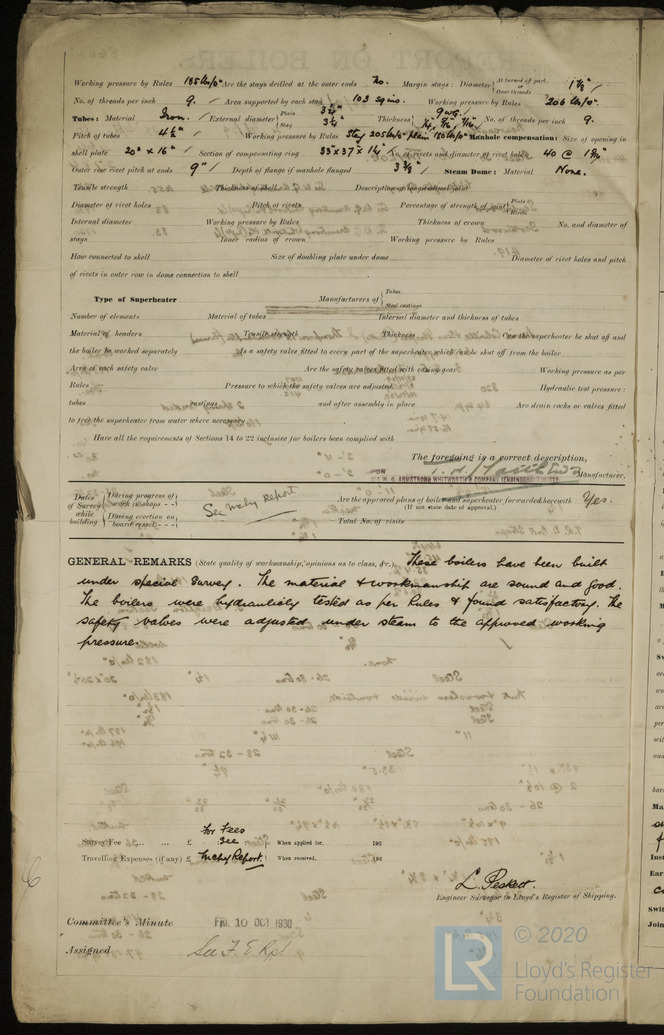 Working pressure by Rules 185 lbs/□" Are the stays drilled at the outer ends No. Margin stays: Diameter { At turned off part, or Over threads 1 7/8"
No. of threads per inch 9. Area supported by each stay 103 sq ins. Working pressure by Rules 206 lbs/□"
Tubes: Material Iron. External diameter { Plain 3 1/4" Stay 3 1/4" Thickness { 9 wg. No. of threads per inch 9.
Pitch of tubes 4 1/2" Working pressure by Rules Stay 205 lbs/□" plain Manhole compensation: Size of opening in
shell plate 20" x 16" Section of compensating ring 33" x 37" x 1 1/4" No. of rivets and diameter of rivet holes 40 @
Outer row rivet pitch at ends 9" Depth of flange if manhole flanged Steam Dome: Material None.
Tensile strength Thickness of shell Description of longitudinal joint
Diameter of rivet holes Pitch of rivets Percentage of strength of joint { Plate Rivets
Internal diameter Working pressure by Rules Thickness of crown No. and diameter of
stays Inner radius of crown Working pressure by Rules
How connected to shell Size of doubling plate under dome Diameter of rivet holes and pitch
of rivets in outer row in dome connection to shell
Type of Superheater Manufacturers of { Tubes Steel castings
Number of elements Material of tubes Internal diameter and thickness of tubes
Material of headers Tensile strength Thickness Can the superheater be shut off and
the boiler be worked separately Is a safety valve fitted to every part of the superheater which can be shut off from the boiler
Area of each safety valve Are the safety valves fitted with easing gear Working pressure as per
Rules Pressure to which the safety valves are adjusted Hydraulic test pressure:
tubes castings and after assembly in place Are drain cocks or valves fitted
to free the superheater from water where necessary
Have all the requirements of Sections 14 to 22 inclusive for boilers been complied with
The foregoing is a correct description,
W. G. ARMSTRONG WHITWORTH & COMPANY (ENGINEERS) LIMITED Manufacturer.
Dates of Survey while building { During progress of work in shops - - See Mchy Report Are the approved plans of boiler and superheater forwarded herewith Yes.
(If not state date of approval.)
During erection on board vessel - - - Total No. of visits
GENERAL REMARKS (State quality of workmanship, opinions as to class, &c.) These boilers have been built
under special survey. The material & workmanship are sound and good.
The boilers were hydraulicly tested as per Rules & found satisfactory. The
safety valves were adjusted under steam to the approved working
pressure.
Survey Fee ... ... £ For Fees See When applied for, 192
Travelling Expenses (if any) £ Mchy Report. When received, 192
L. Peskett.
Engineer Surveyor to Lloyd's Register of Shipping.
Committee's Minute FRI. 10 OCT 1930
Assigned See F. E. Rpt
LR © 2020
Lloyd's Register
Foundation